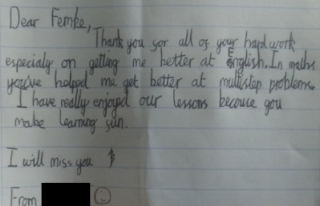 Dear Femke,
Thank you for all of your hard work
especialy on getting me better at English. In maths
you've helped me get better at multistep problems.
I have really enjoyed our lessons becouse you
make learning fun.
I will miss you
From